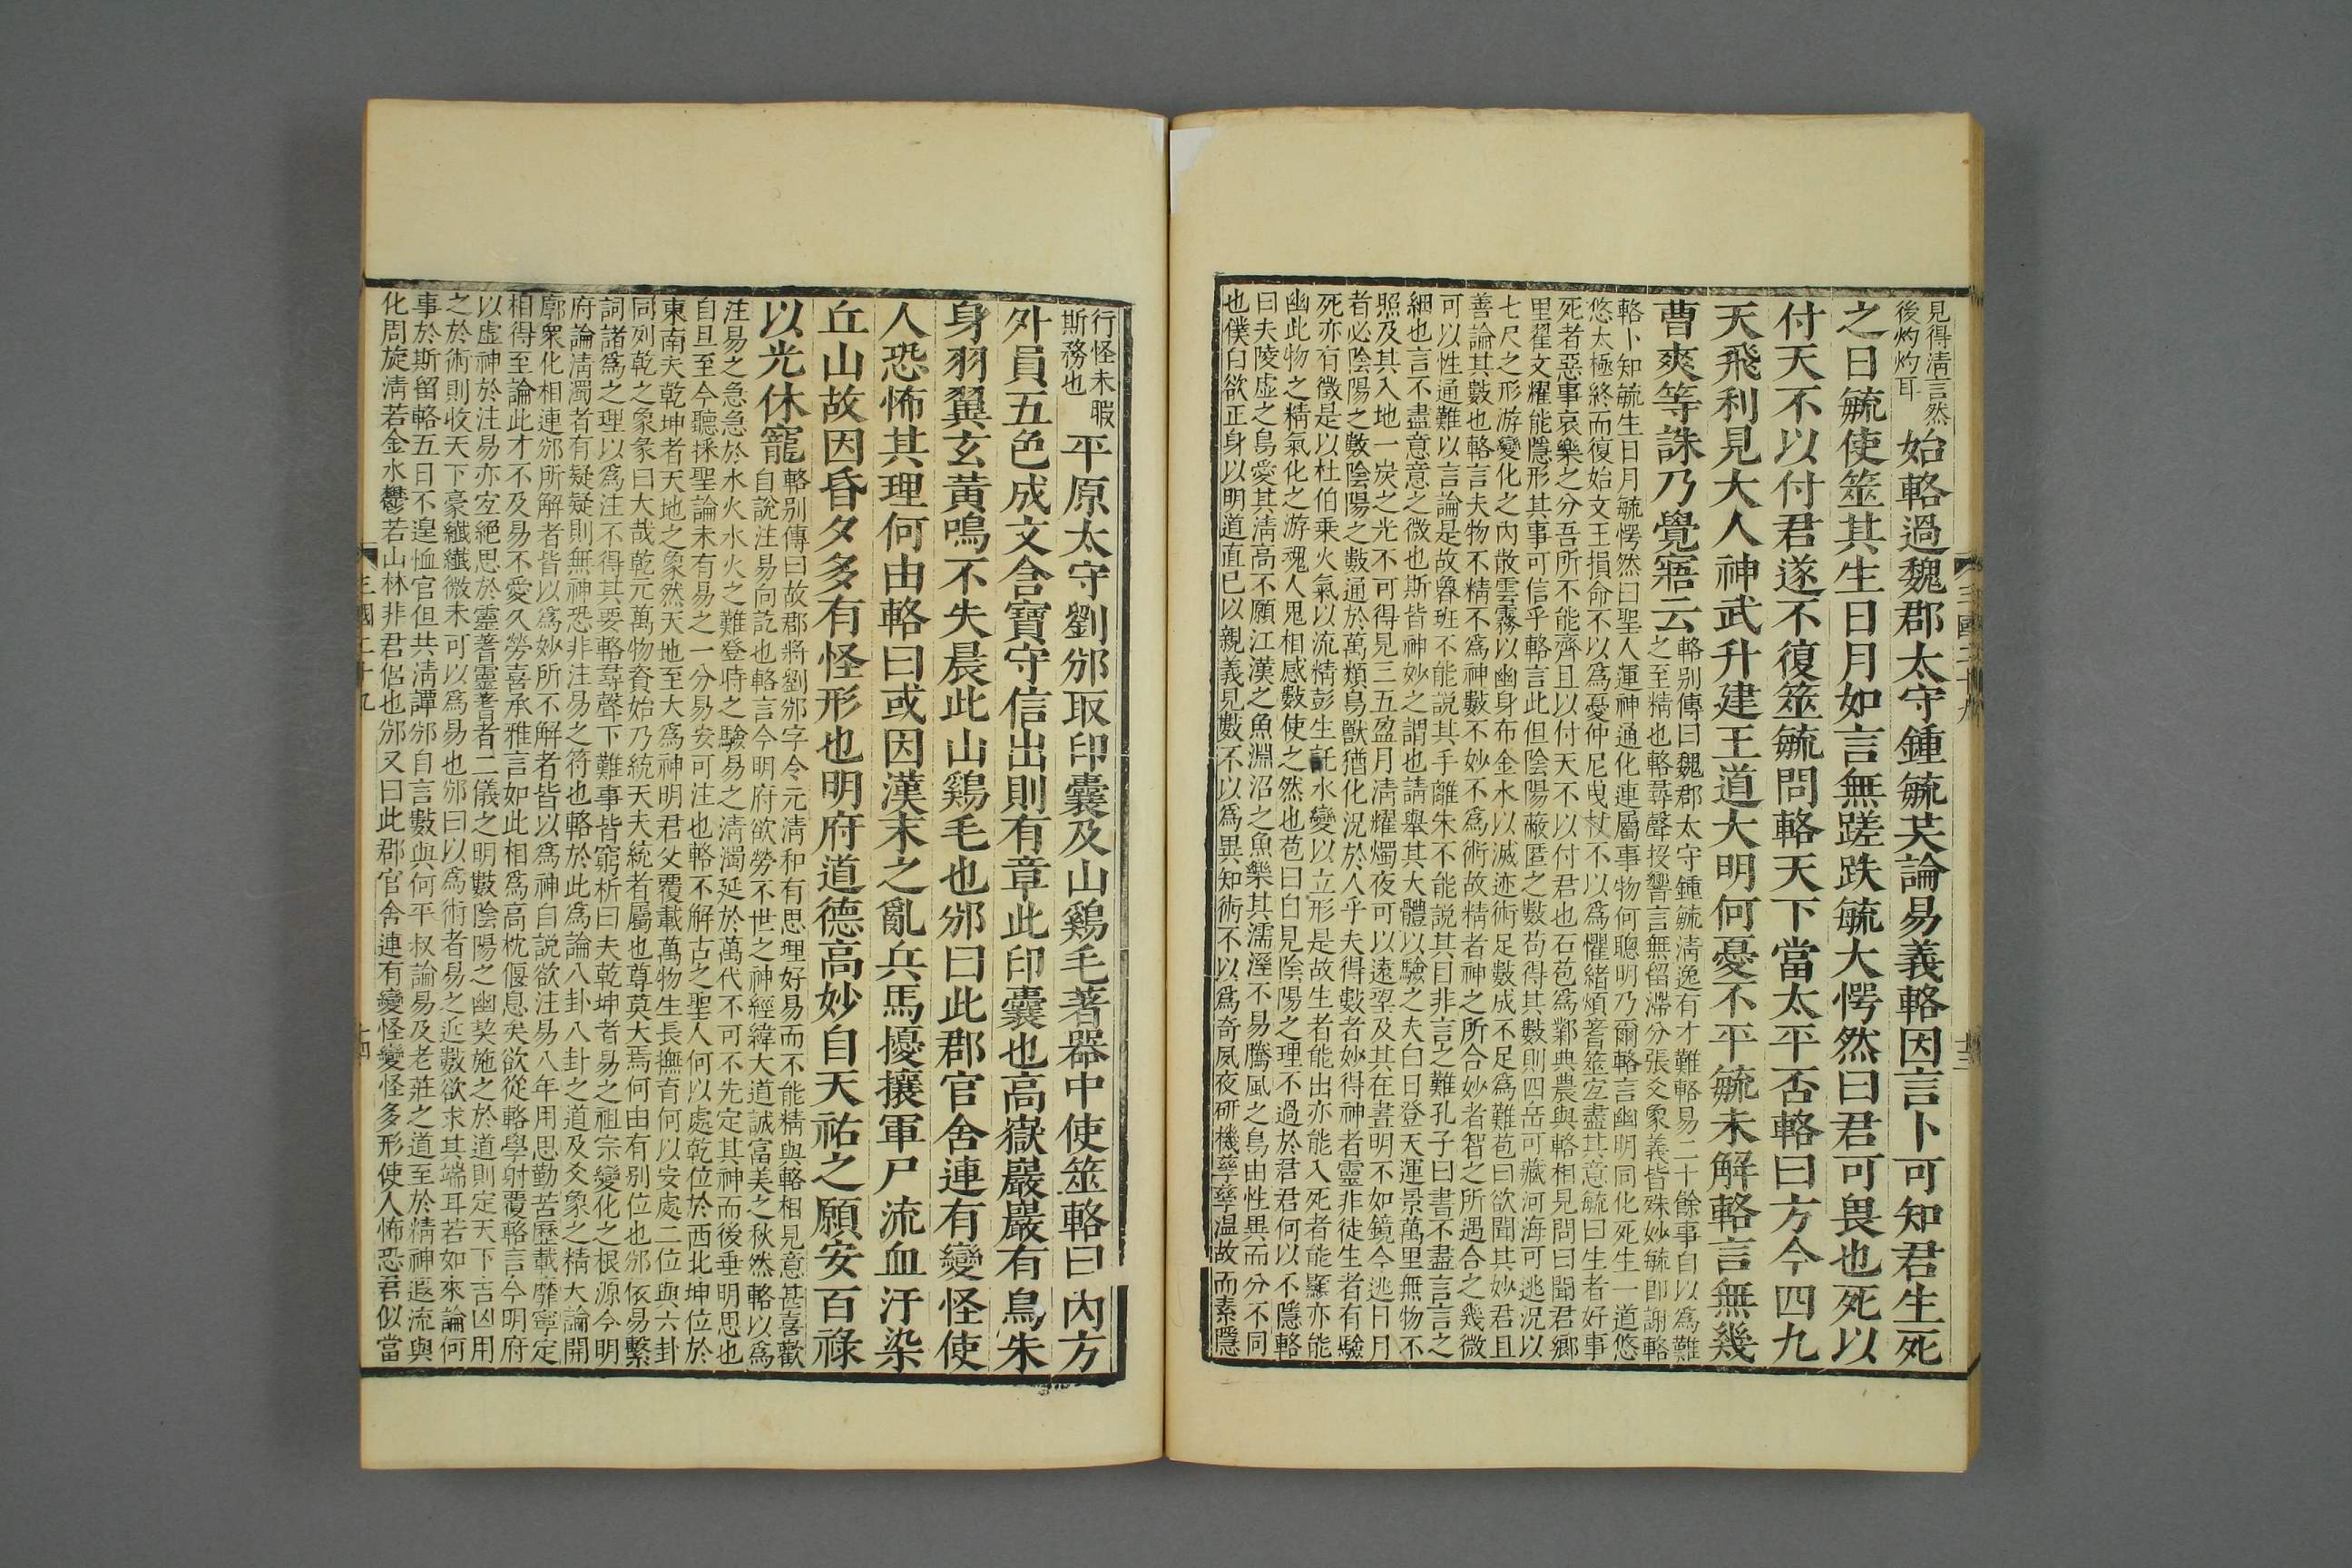 見得清言然
後灼灼耳
始輅過魏郡太守鍾毓共論易義輅因言卜可知君生死
之日毓使筮其生日月如言無蹉跌毓大愕然曰君可畏也死以
付天不以付君遂不復筮毓問輅天下當太平否輅曰方今四九
天飛利見大人神武升建王道大明何憂不平毓未解輅言無幾
曹爽等誅乃覺寤云
輅别傳曰魏郡太守鍾毓清逸有才難輅易二十餘事自以爲難
之至精也輅尋聲投響言無留滯分張爻象義皆殊妙毓即謝輅
輅卜知毓生日月毓愕然曰聖人運神通化連屬事物何聰明乃爾輅言幽明同化死生一道悠
悠太極終而復始文王損命不以爲憂仲尼曳杖不以爲懼緒煩蓍筮宜盡其意毓曰生者好事
死者惡事哀樂之分吾所不能齊且以付天不以付君也石苞爲鄴典農與輅相見問曰聞君鄉
里翟文耀能隱形其事可信乎輅言此但陰陽蔽匿之數苟得其數則四岳可藏河海可逃況以
七尺之形游變化之內散雲霧以幽身布金水以滅迹術足數成不足爲難苞曰欲聞其妙君且
善論其數也輅言夫物不精不爲神數不妙不爲術故精者神之所合妙者智之所遇合之幾微
可以性通難以言論是故魯班不能說其手離朱不能說其目非言之難孔子曰書不盡言言之
細也言不盡意意之微也斯皆神妙之謂也請舉其大體以驗之夫白日登天運景萬里無物不
照及其入地一炭之光不可得見三五盈月清耀燭夜可以遠望及其在晝明不如鏡今逃日月
者必陰陽之數陰陽之數通於萬類鳥獸猶化況於人乎夫得數者妙得神者靈非徒生者有驗
死亦有徵是以杜伯乗火氣以流精彭生託水變以立形是故生者能出亦能入死者能顯亦能
幽此物之精氣化之游魂人鬼相感數使之然也苞曰目見陰陽之理不過於君君何以不隱輅
曰夫陵虛之鳥愛其清高不願江漢之魚淵沼之魚樂其濡溼不易騰風之鳥由性異而分不同
也僕自欲正身以明道直已以親義見數不以爲異知術不以爲奇夙夜研機孳孳温故而素隱
行怪未暇
斯務也
平原太守劉邠取印囊及山鷄毛著器中使筮輅曰內方
外員五色成文含寶守信出則有章此印囊也高嶽巖巖有鳥朱
身羽翼玄黃鳴不失晨此山鷄毛也邠曰此郡官舍連有變怪使
人恐怖其理何由輅曰或因漢末之亂兵馬擾攘軍尸流血汙染
丘山故因昏夕多有怪形也明府道德高妙自天祐之願安百祿
以光休寵
輅别傳曰故郡將劉邠字令元清和有思理好易而不能精與輅相見意甚喜歡
自說注易向訖也輅言今明府欲勞不世之神經緯大道誠富美之秋然輅以爲
注易之急急於水火水火之難登時之驗易之清濁延於萬代不可不先定其神而後垂明思也
自旦至今聽採聖論未有易之一分易安可注也輅不解古之聖人何以處乾位於西北坤位於
東南夫乾坤者天地之象然天地至大爲神明君父覆載萬物生長撫育何以安處二位與六卦
同列乾之象彖曰大哉乾元萬物資始乃統天夫統者屬也尊莫大焉何由有别位也邠依易繫
詞諸爲之理以爲注不得其要輅尋聲下難事皆窮析曰夫乾坤者易之祖宗變化之根源今明
府論清濁者有疑疑則無神恐非注易之符也輅於此爲論八卦之道及爻象之精大論開
廓衆化相連邠所解者皆以爲妙所不解者皆以爲神自說欲注易八年用思勤苦歷載靡寧定
相得至論此才不及易不愛久勞喜承雅言如此相爲高枕偃息矣欲從輅學射覆輅言今明府
以虛神於注易亦宜絕思於靈蓍靈蓍者二儀之明數陰陽之幽契施之於道則定天下吉凶用
之於術則收天下豪纖纖微未可以爲易也邠曰以爲術者易之近數欲求其端耳若如來論何
事於斯留輅五日不遑恤官但共清譚邠自言數與何平叔論易及老莊之道至於精神遐流與
化周旋清若金水鬱若山林非君侶也邠又曰此郡官舍連有變怪變怪多形使人怖恐君似當
三國二十九
三國二十九
十四